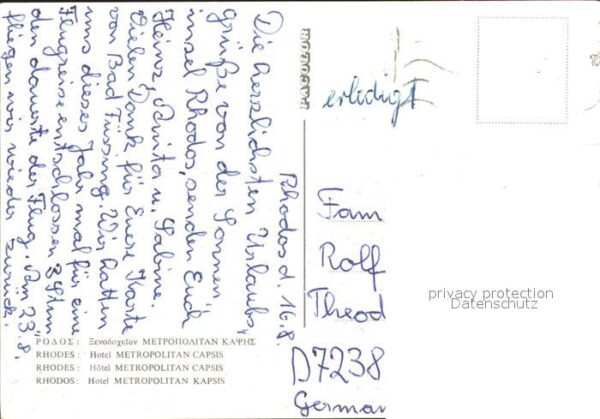 Rhodos d. 16.8.
Die herzlichsten Urlaubs,
grüße von der Sonnen
insel Rhodos, senden Euch
Heinz, Anita u. Sabine.
Vielen Dank für Euere Karte
von Bad Füssing. Wir hatten
uns dieses Jahr mal für eine
Flugreise entschlossen 3 Stun
den dauerte der Flug. Am 23.8.
fliegen wir wieder zurück.
ΡΟΔΟΣ: Ξενοδοχεῖον ΜΕΤΡΟΠΟΛΙΤΑΝ ΚΑΨΗΣ
RHODES: Hotel METROPOLITAN CAPSIS
RHODES: Hôtel METROPOLITAN CAPSIS
RHODOS: Hotel METROPOLITAN KAPSIS
erledigt
Fam
Rolf
Theod
D7238
German
privacy protection
Datenschutz